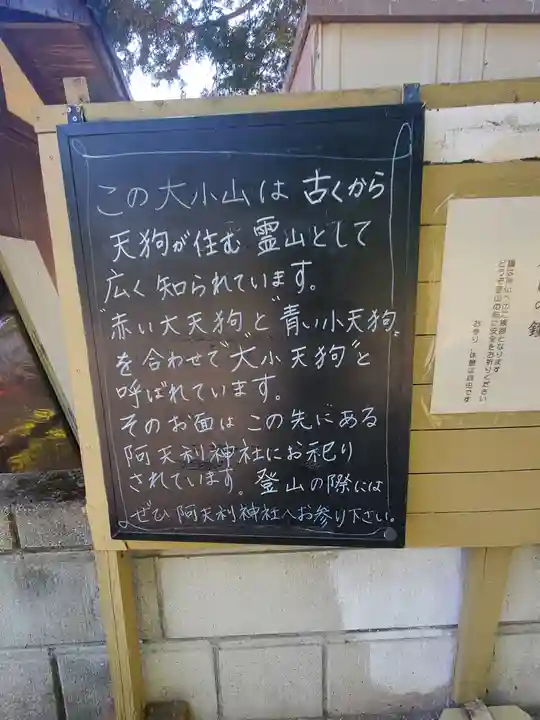 この大小山は 古くから
天狗が住む 霊山として
広く知られています。
"赤い大天狗"と"青い小天狗"
を合わせて"大小天狗"と
呼ばれています。
そのお面は この先にある
阿夫利神社にお祀り
されています。登山の際には
ぜひ 阿夫利神社へお参り下さい。
の鐘
お参り、休憩は自由です